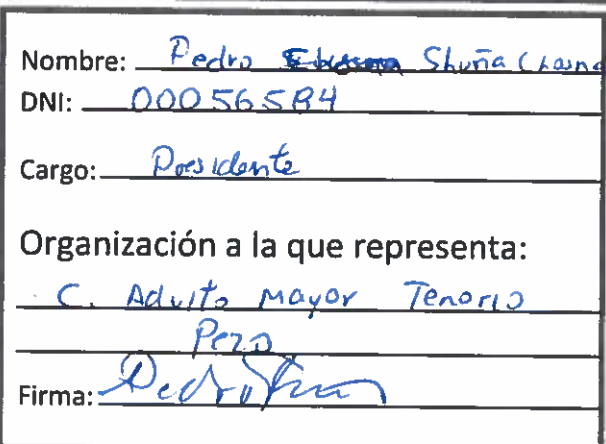 Nombre: Pedro Shuña Chasna
DNI: 00056584
Cargo: Presidente
Organización a la que representa:
C. Adulto Mayor Tenorio
Pezo
Firma: